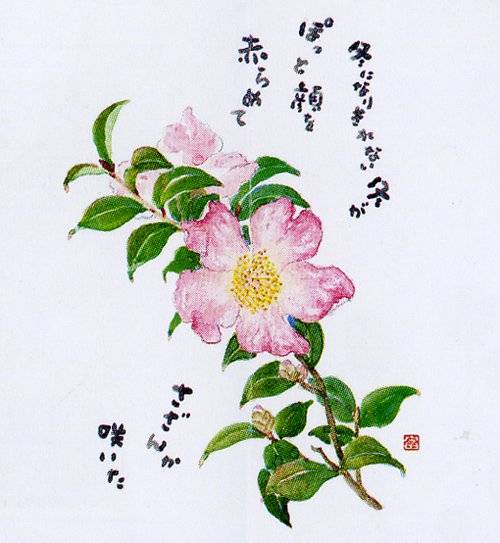 冬になりきれない冬が
ぽっと顔を
赤らめて
さざんか
咲いた